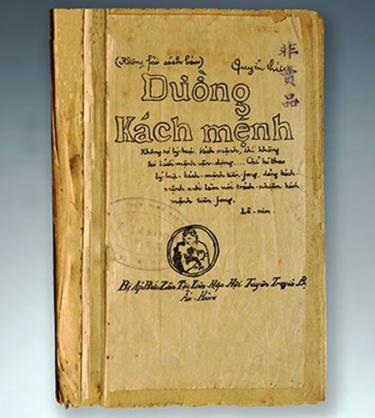 (Không fải sách bán) Quyển thứ
非賣品
Đường
Kách mệnh
Không có lý luận kách mệnh, thì không
có kách mệnh vận động.... Chỉ có theo
lý luận kách mệnh tiền fong, đảng kách
mệnh mới làm nổi trách nhiệm kách
mệnh tiền fong.
Lê-nin.
Bị Áp Bức Zân Tộc Liên Hợp Hội Tuyên Truyền Bộ
Ấn Hành